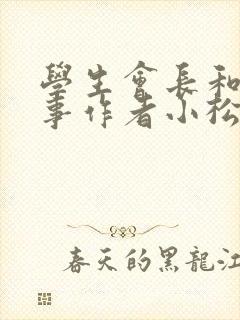 學生會長和
事作者小松
春天的黑龍江